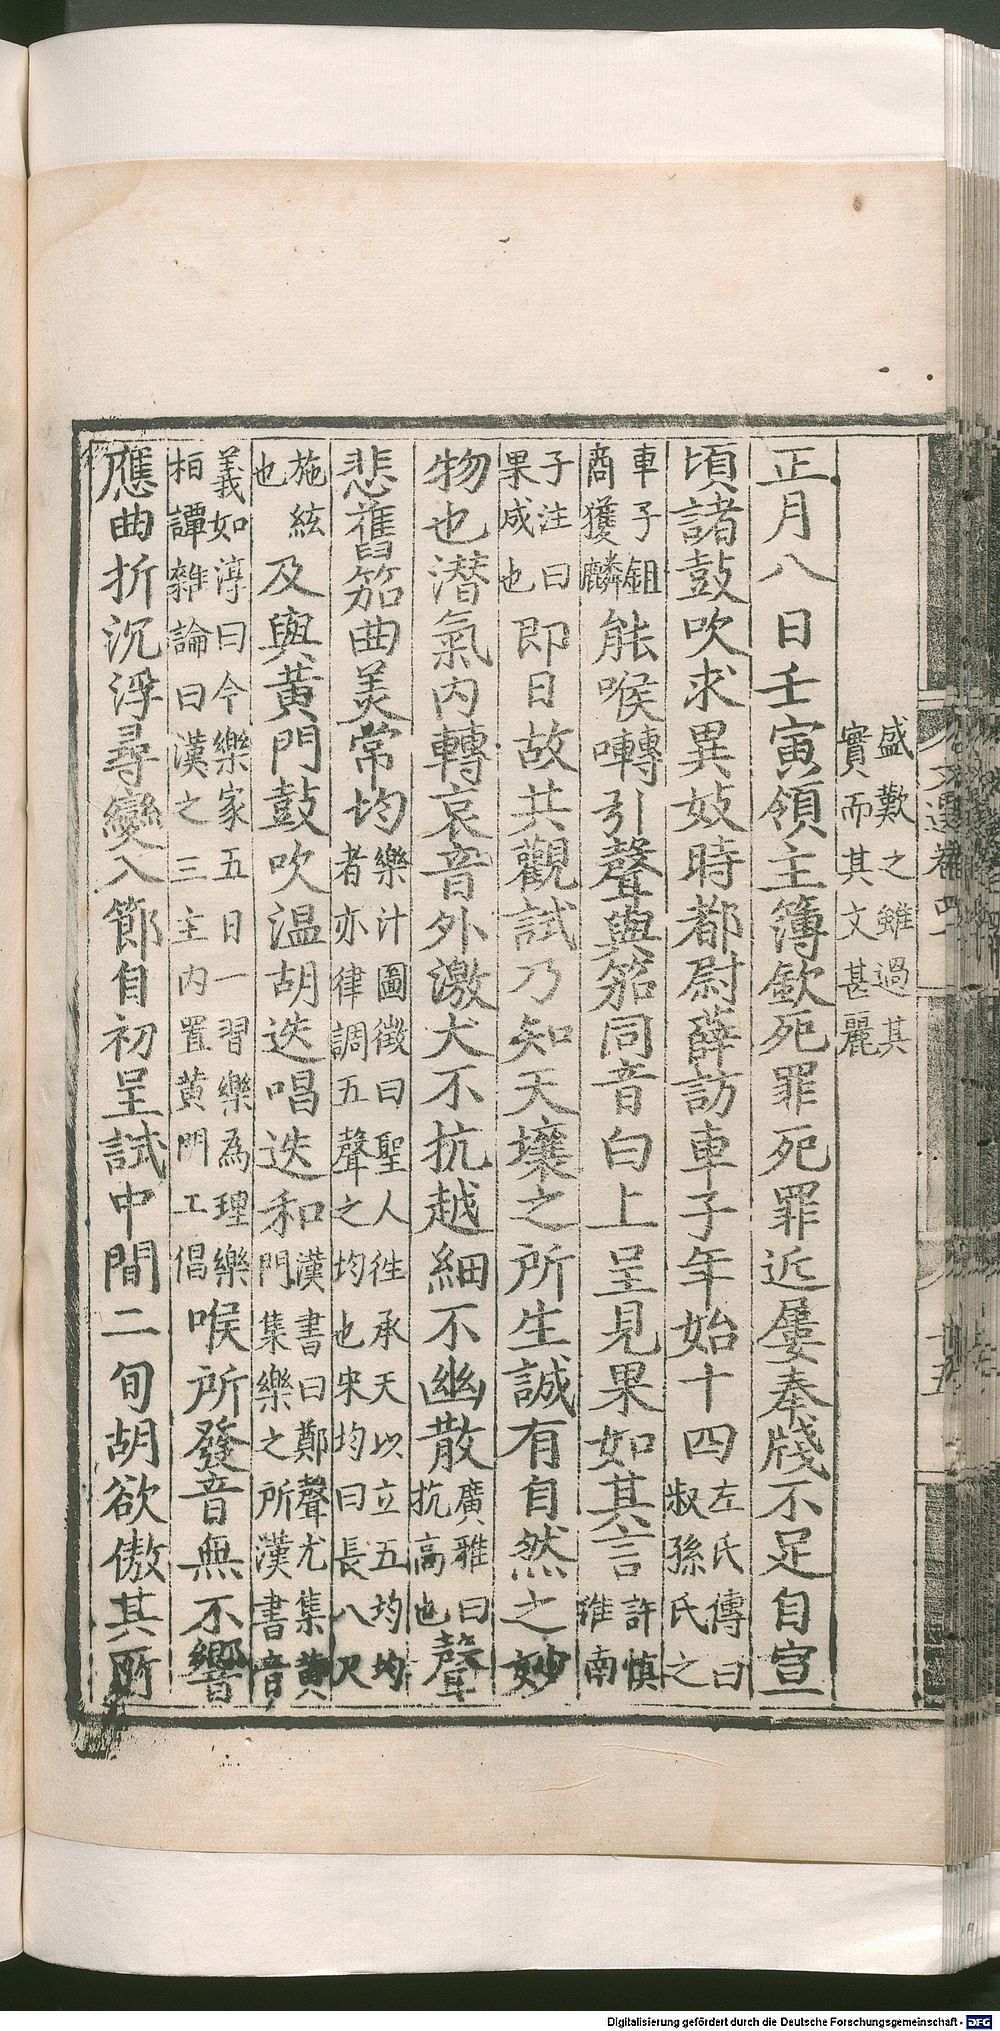 盛歎之雖過其
實而其文甚麗
正月八日壬寅領主簿欽死罪死罪近屢奉牋不足自宣
頃諸鼓吹求異妓時都尉薛訪車子年始十四左氏傳曰
叔孫氏之
車子鉏
商獲麟能喉囀引聲與笳同音白上呈見果如其言許慎
淮南
子注曰
果成也即日故共觀試乃知天壤之所生誠有自然之妙
物也潛氣內轉哀音外激大不抗越細不幽散廣雅曰
抗高也聲
悲舊笳曲美常均樂汁圖徵曰聖人往承天以立五均均
者亦律調五聲之均也宋均曰長八尺
施絃
也及與黃門鼓吹温胡迭唱迭和漢書曰鄭聲尤集黃
門集樂之所漢書音
義如淳曰今樂家五日一習樂爲理樂
桓譚雜論曰漢之三主內置黃門工倡喉所發音無不響
應曲折沉浮尋變入節自初呈試中間二旬胡欲傲其所
Digitalisierung gefördert durch die Deutsche Forschungsgemeinschaft - DFG